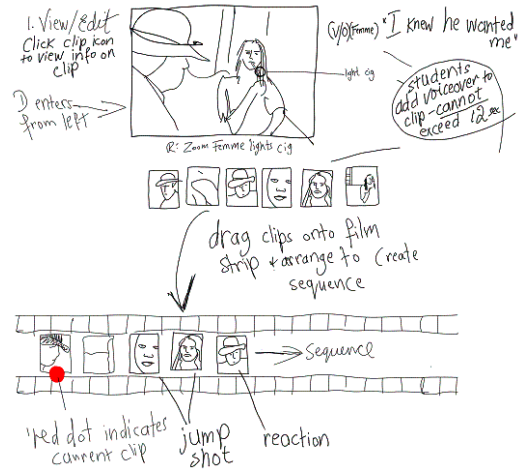 1. View/Edit
Click clip icon
to view info on
clip
D enters
from left
(V/O)(Femme) "I knew he wanted
me"
light cig
students
add voiceover to
clip - cannot
exceed 12 sec
R: Zoom femme lights cig
drag clips onto film
strip & arrange to create
sequence
sequence
'red dot indicates
current clip
jump
shot
reaction